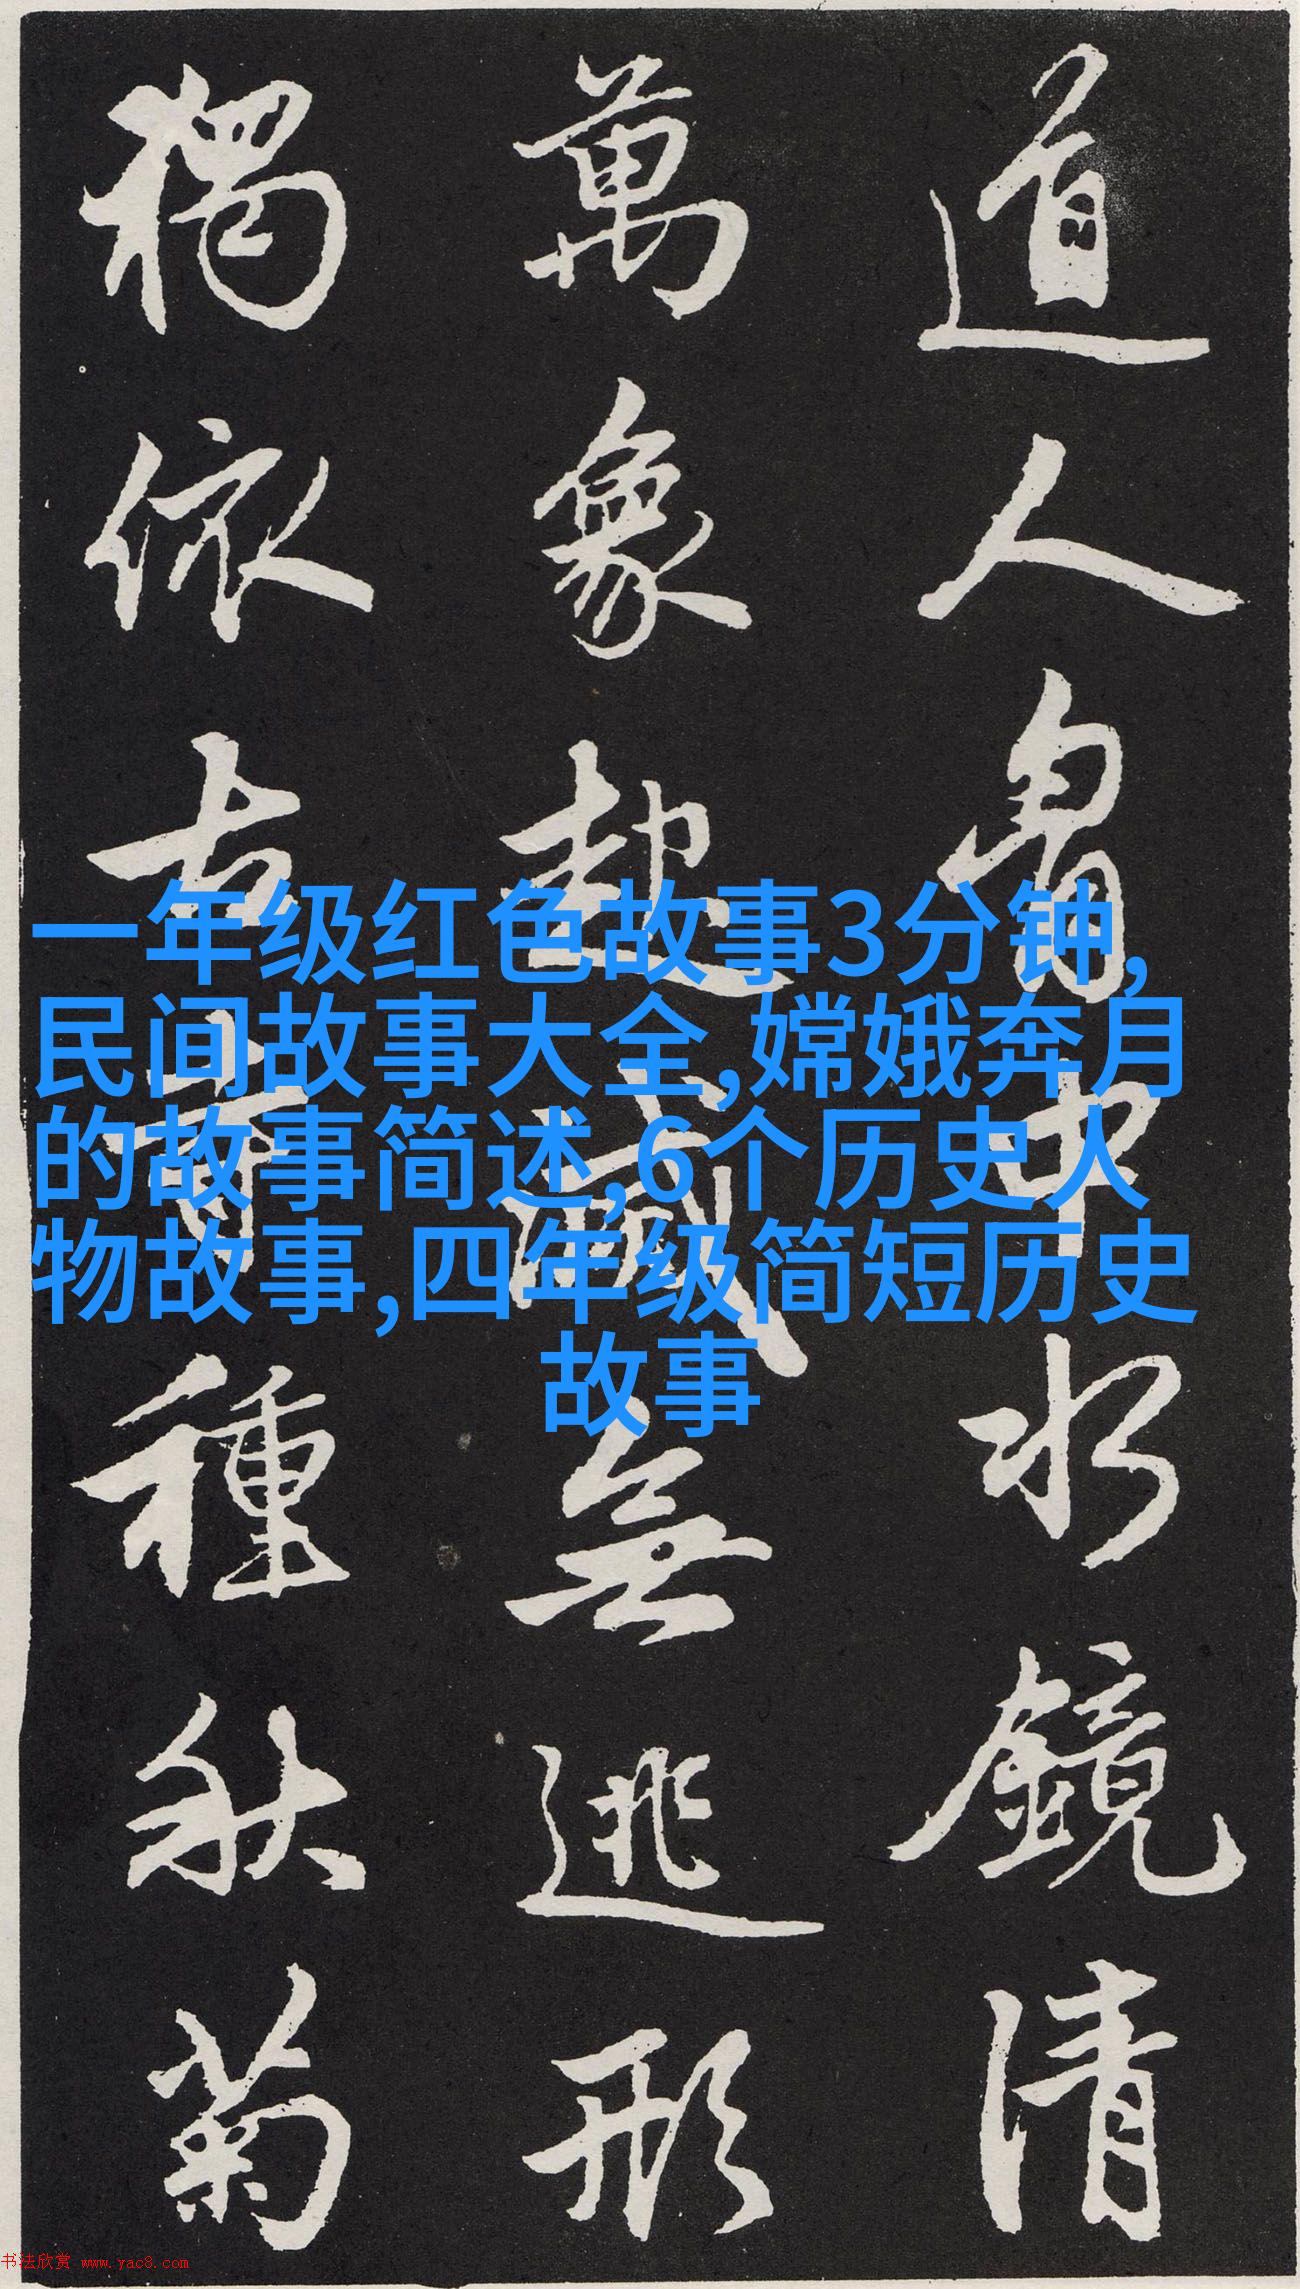 道人胷中水鏡清
萬象起滅無逃形
獨依古寺種秋菊
一年级红色故事3分钟,
民间故事大全,嫦娥奔月
的故事简述,6个历史人
物故事,四年级简短历史
故事
书法欣赏 www.yac8.com